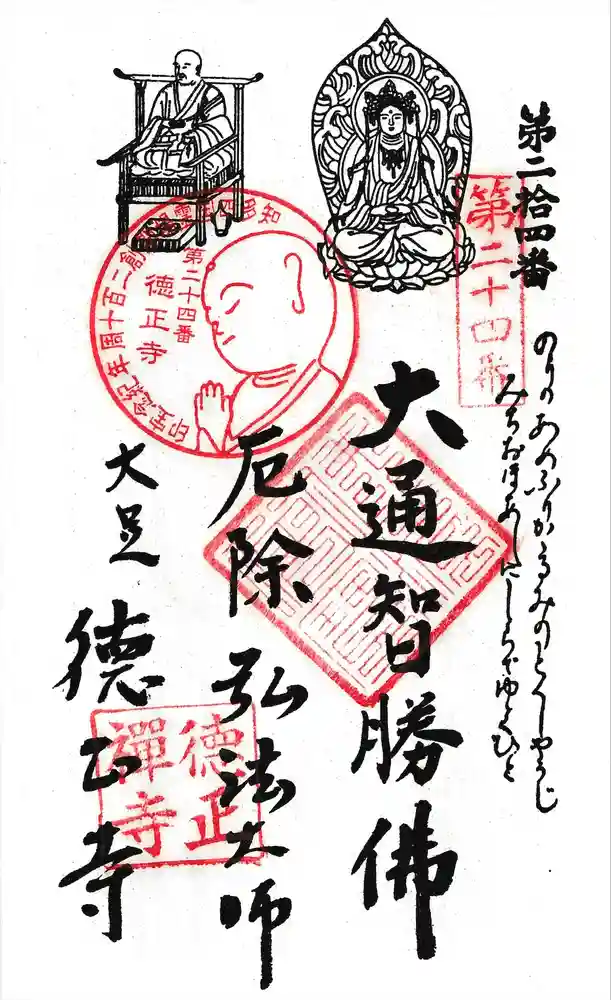 第二拾四番
第二十四番
のりのあめふりかゝるみのとくしやうじ
みちおほあしにしらでゆくひと
大通智勝佛
厄除弘法大師
大足
徳正寺
第二十四番
徳正寺
徳正
禪寺